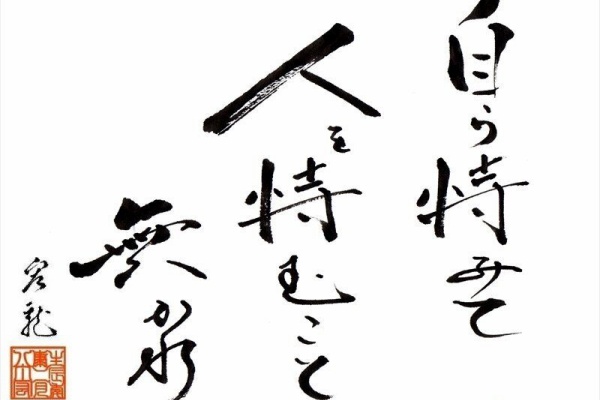 自ら恃みて
人を恃むこと
無かれ